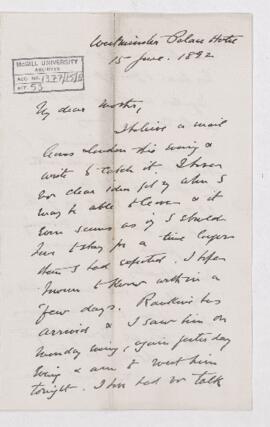 Westminster Palace Hotel
15 June. 1892
McGILL UNIVERSITY
ARCHIVES
ACC. NO. 1377/15/
REF. 53
My dear Mother,
I believe a mail
leaves London this evening &
write to catch it. I have
no clear idea yet of when I
may be able to leave & it
even seems as if I should
have to stay for a time longer
than I had expected. I hope
however to know within a
few days. Rankine has
arrived & I saw him on
Monday evening, again yesterday
evening & am to meet him
tonight. I have had no talk